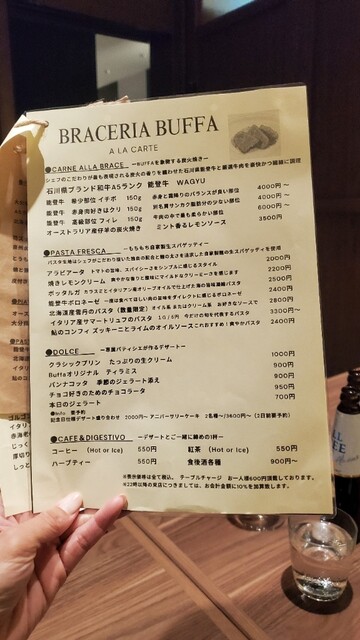 BRACERIA BUFFA
A LA CARTE
●CARNE ALLA BRACE ーBUFFAを象徴する炭火焼きー
石川県ブランド和牛A5ランク 能登牛 WAGYU
能登牛 希少部位 イチボ 150g 赤身と霜降りのバランスが良い部位 4000円〜
能登牛 赤身肉好きはクリ 150g 4000円〜
能登牛 高級部位 フィレ 150g 牛肉の中で最も柔らかい部位 4000円〜
オーストラリア産仔羊の炭火焼き ミント香るレモンソース 2500円
●PASTA FRESCA ーもちもち自家製生スパゲッティー
アラビアータ トマトの旨味、スパイシーさをシンプルに感じるスタイル 2000円
焼きレモンクリーム 爽やかな香りと酸味にマイルドなクリーミーさを感じます 2200円
ボッタルガ カラスミとイタリア産オリーブオイルで仕上げた海の旨味凝縮パスタ 2500円
能登牛ボロネーゼ 2400円
北海道産雲丹のパスタ（数量限定） オイル系 またはクリーム系 お好きなソースで 2800円
イタリア産サマートリュフのパスタ 3300円
鮎のコンフィ ズッキーニとライムのオイルソース 2400円
●DOLCE ー専属パティシエが作るデザートー
クラシックプリン たっぷりの生クリーム 1000円
Buffaオリジナル ティラミス 900円
パンナコッタ 季節のジェラート添え 900円
チョコ好きのためのチョコラータ 950円
本日のジェラート 700円
●Info 要予約
記念日仕様デザート盛り合わせ 2000円〜 アニバーサリーケーキ 2名様〜/3600円〜（2日前要予約）
●CAFE&DIGESTIVO ーデザートとご一緒に締めの1杯ー
コーヒー (Hot or Ice) 550円 紅茶 (Hot or Ice) 550円
ハーブティー 550円 食後酒各種 900円〜
※表示価格は全て税込、テーブルチャージ お一人様600円頂戴しております。
※22時以降の来店につきましては、お会計金額に10％を加算致します。